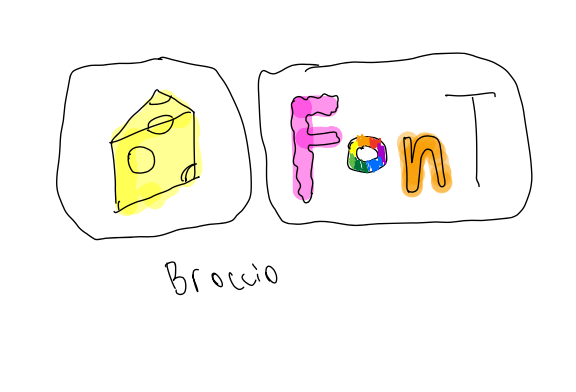 FonT
Broccio